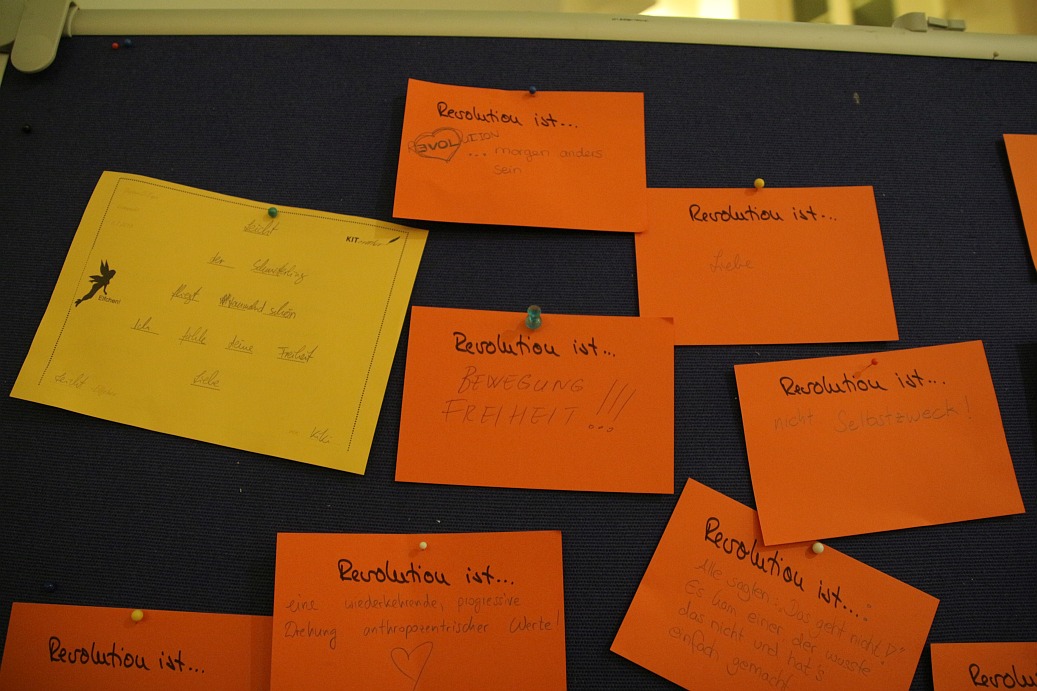 Revolution ist...
REVOLUTION
... morgen anders
sein
Revolution ist...
Liebe
leicht
der Schmetterling
fliegt wunderbar schön
Ich fühle deine Freiheit
Liebe
Elfchen!
KIT
Kiki
Revolution ist...
BEWEGUNG
FREIHEIT !!!
Revolution ist...
nicht Selbstzweck!
Revolution ist....
Alle sagten: "Das geht nicht!"
Es kam einer der wusste
das nicht und hat's
einfach gemacht
Revolution ist...
eine wiederkehrende, progressive
Drehung anthropozentrischer Werte!
Revolution ist...